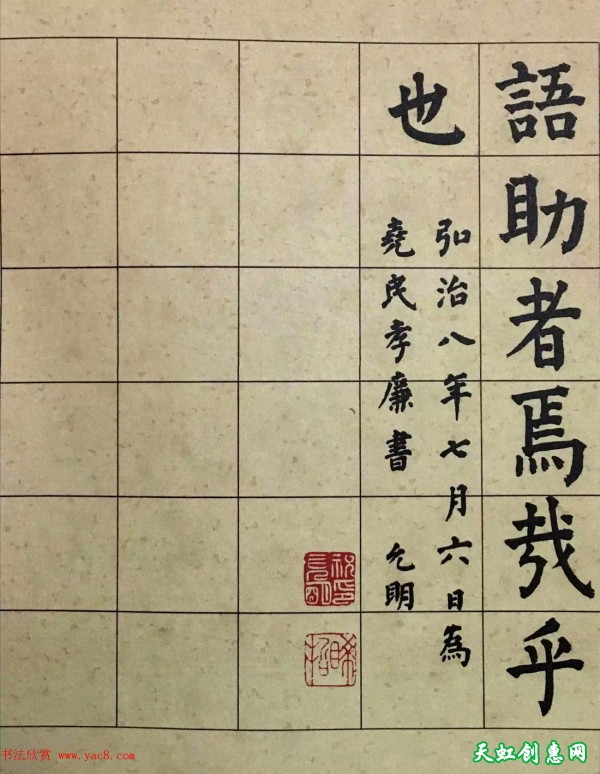 語助者焉哉乎
也
弘治八年七月六日為
堯民孝廉書 允明
祝允明印
晞哲
书法欣赏 www.yac8.com
天虹创惠网